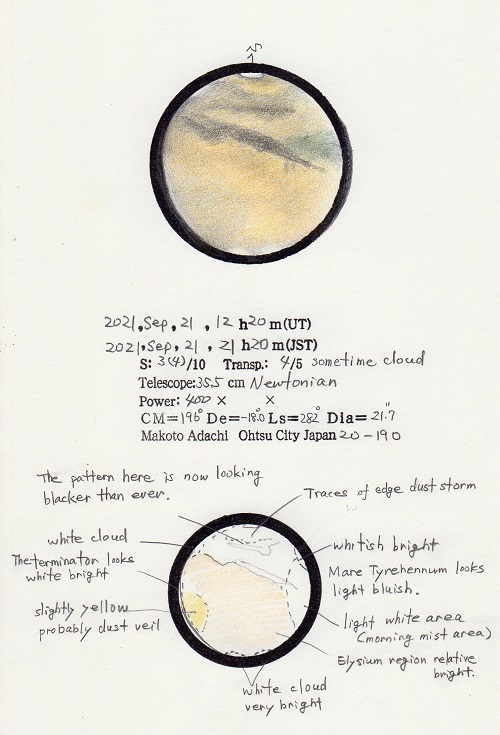 S
2021, Sep, 21, 12 h20 m(UT)
2021, Sep, 21, 21 h20 m(JST)
S: 3(4)/10 Transp.: 4/5 sometime cloud
Telescope: 35.5 cm Newtonian
Power: 400 × ×
CM=196° De=-18.0 Ls=282° Dia=21.7"
Makoto Adachi Ohtsu City Japan 20-190
The pattern here is now looking
blacker than ever.
Traces of edge dust storm
white cloud
whitish bright
The terminator looks
white bright
Mare Tyrehennum looks
light bluish.
slightly yellow
probably dust veil
light white area
(morning mist area)
Elysium region relative
bright.
white cloud
very bright